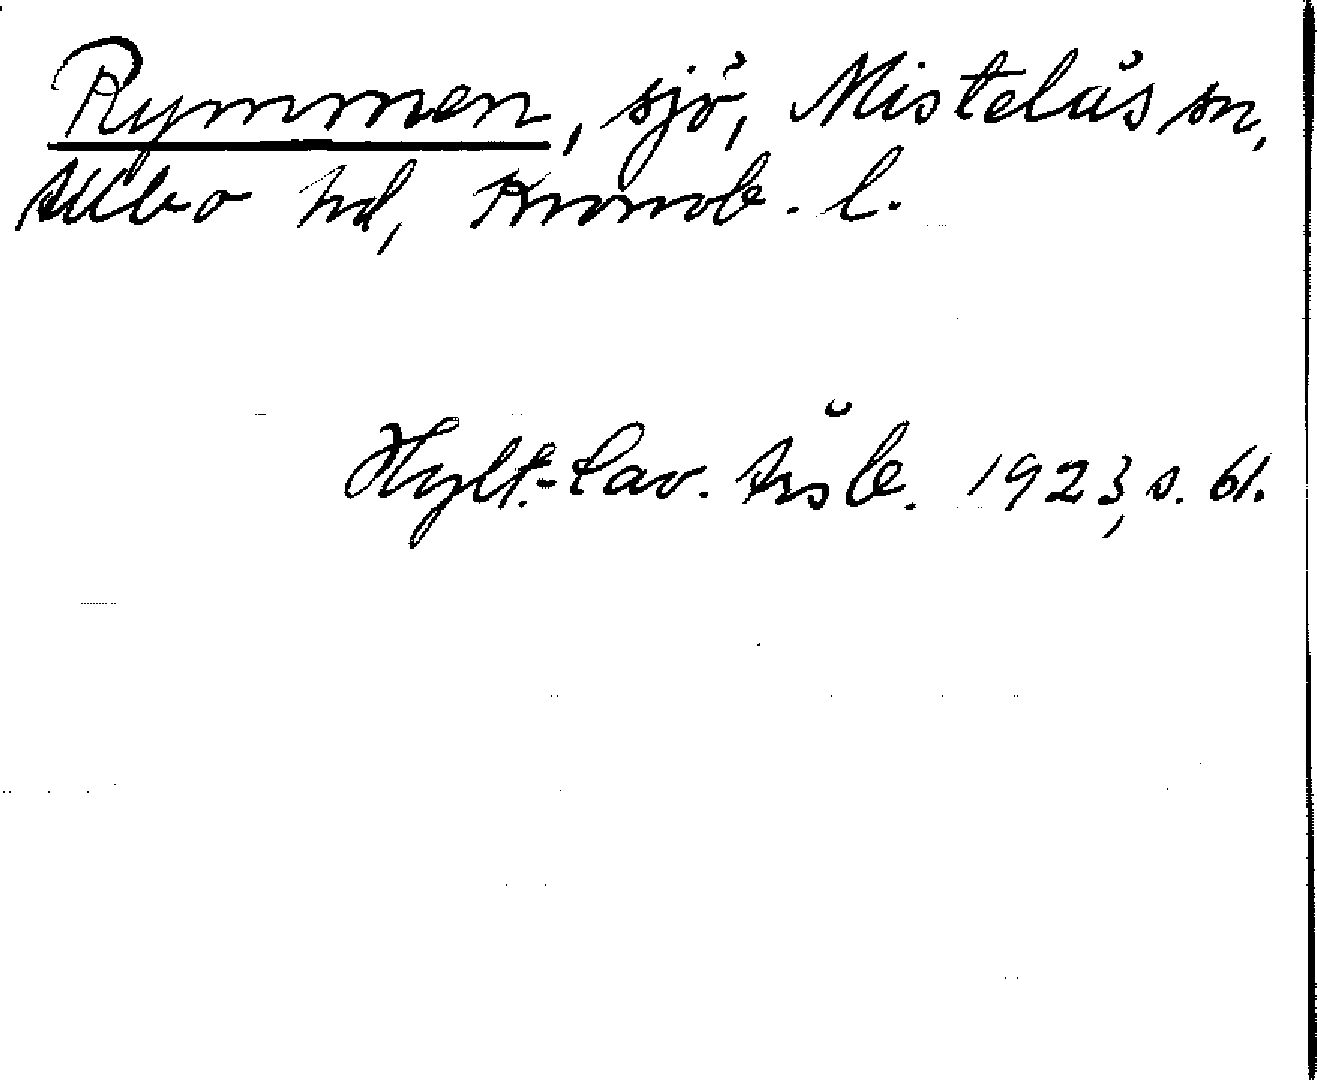 Rymmen, sjö, Mistelås sn,
Allbo hd, Kronob. l.
Hylt.-Cav. Årsb. 1923, s. 61.